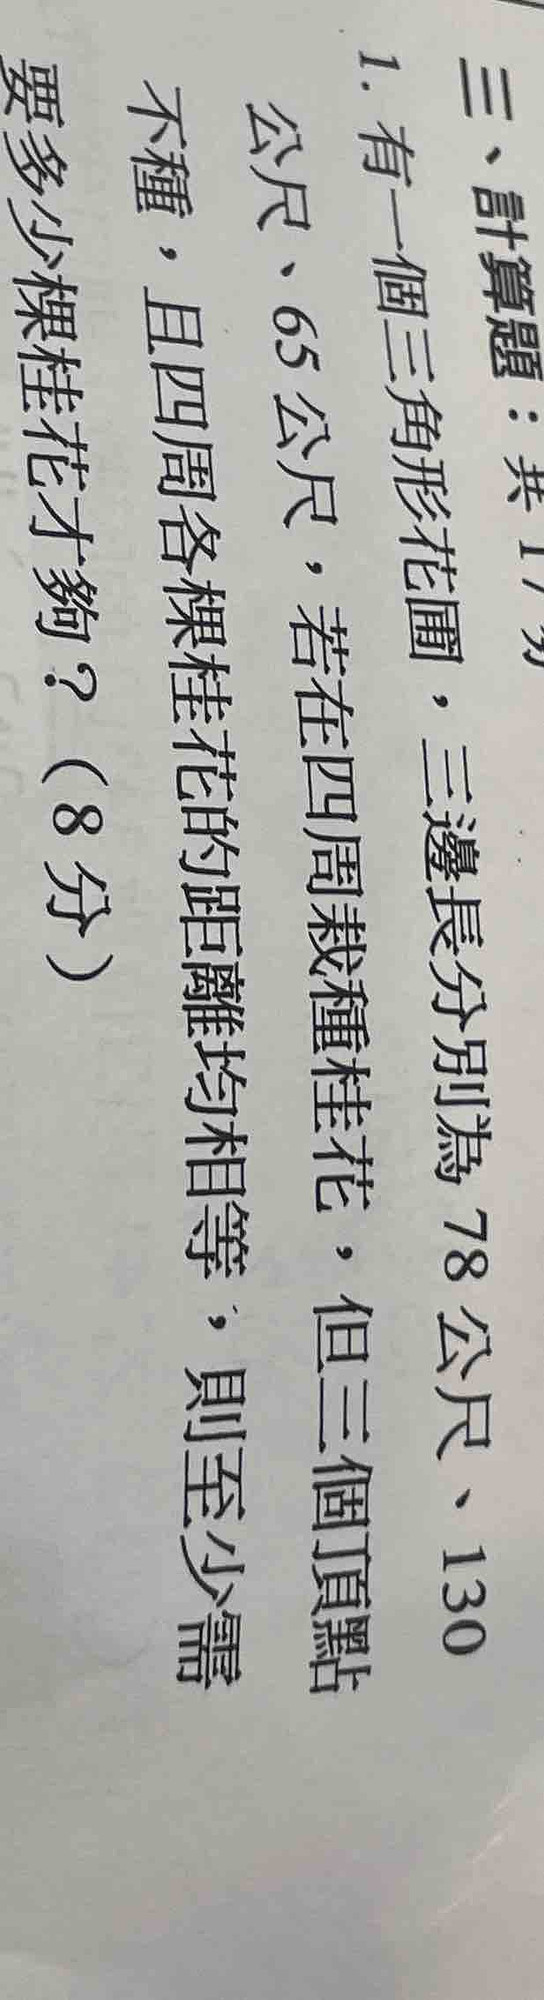 三、計算題：共17分
1. 有一個三角形花圃，三邊長分別為 78 公尺、130
公尺、65 公尺，若在四周栽種桂花，但三個頂點
不種，且四周各棵桂花的距離均相等，則至少需
要多少棵桂花才夠？（8 分）